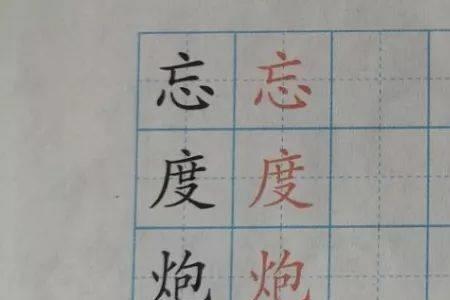 忘 忘
度 度
炮 炮